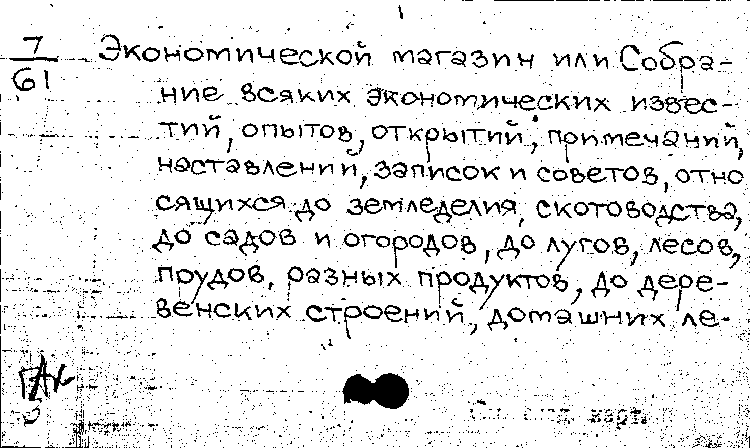 7
61
Экономической магазин или Собра-
ние всяких экономических извес-
тий, опытов, открытий, примечаний,
наставлений, записок и советов, отно
сящихся до земледелия, скотоводства,
до садов и огородов, до лугов, лесов,
прудов, разных продуктов, до дере-
венских строений, домашних ле-
карт.